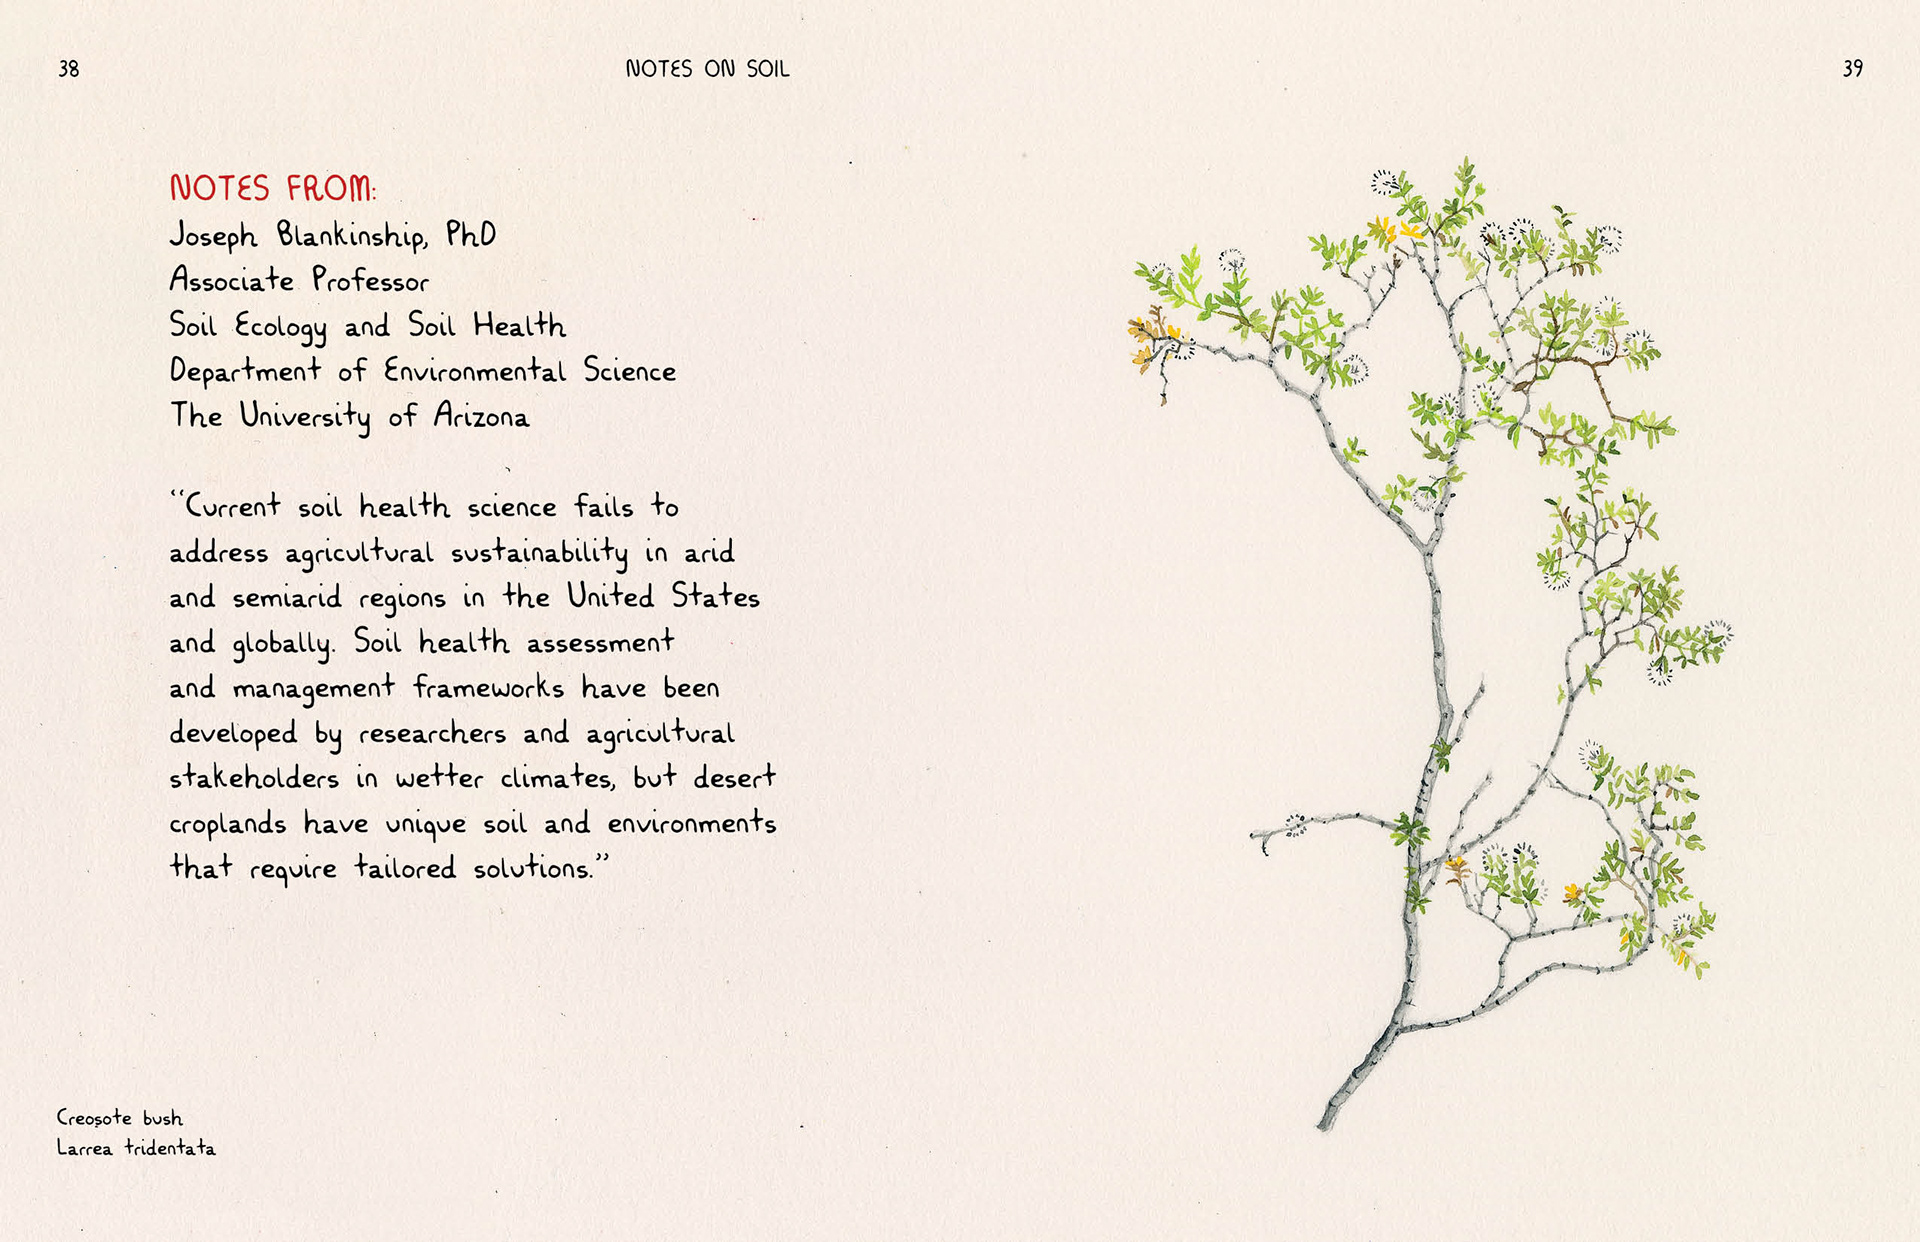 38
NOTES ON SOIL
39
NOTES FROM:
Joseph Blankinship, PhD
Associate Professor
Soil Ecology and Soil Health
Department of Environmental Science
The University of Arizona
“Current soil health science fails to
address agricultural sustainability in arid
and semiarid regions in the United States
and globally. Soil health assessment
and management frameworks have been
developed by researchers and agricultural
stakeholders in wetter climates, but desert
croplands have unique soil and environments
that require tailored solutions.”
Creosote bush
Larrea tridentata